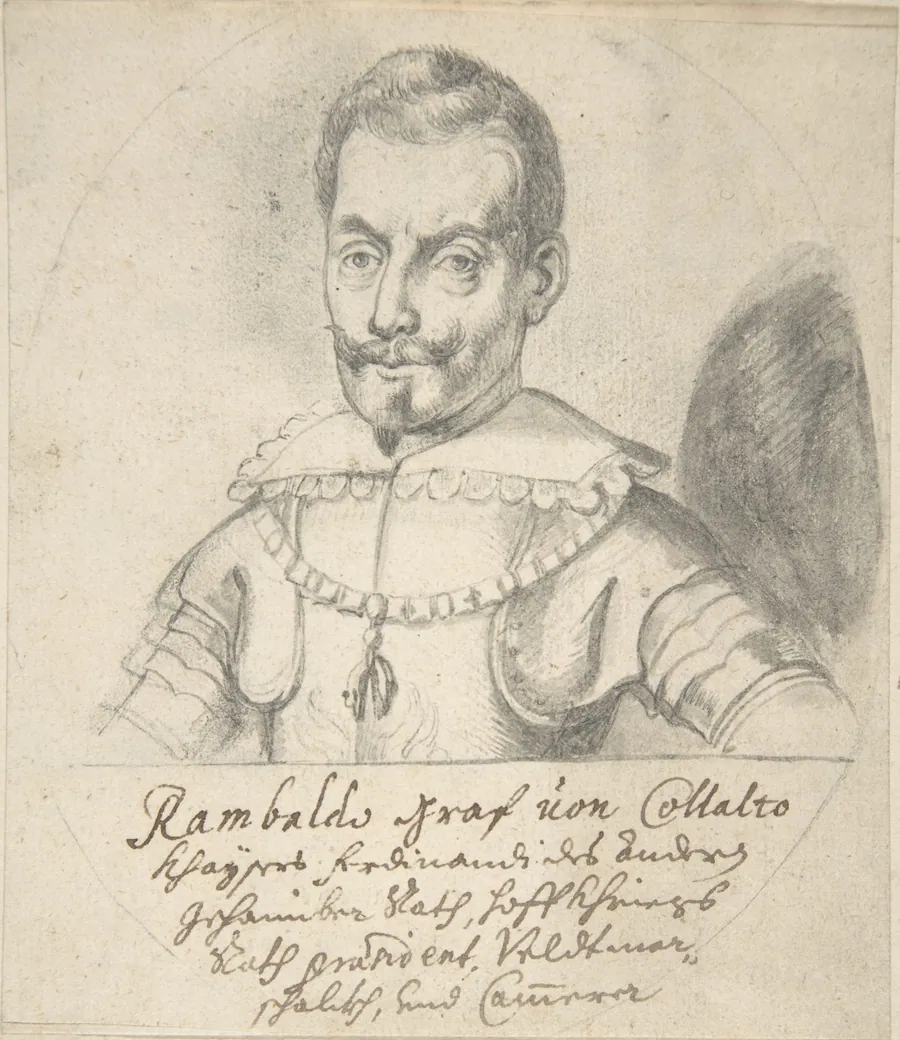 Rambaldo Graf von Collalto
Khaÿsers Ferdinandi des Andern
gehaimber Rath, Hoff Khriegs
Rath præsident, Veldtmar„
schalkh, und Cam̅erer